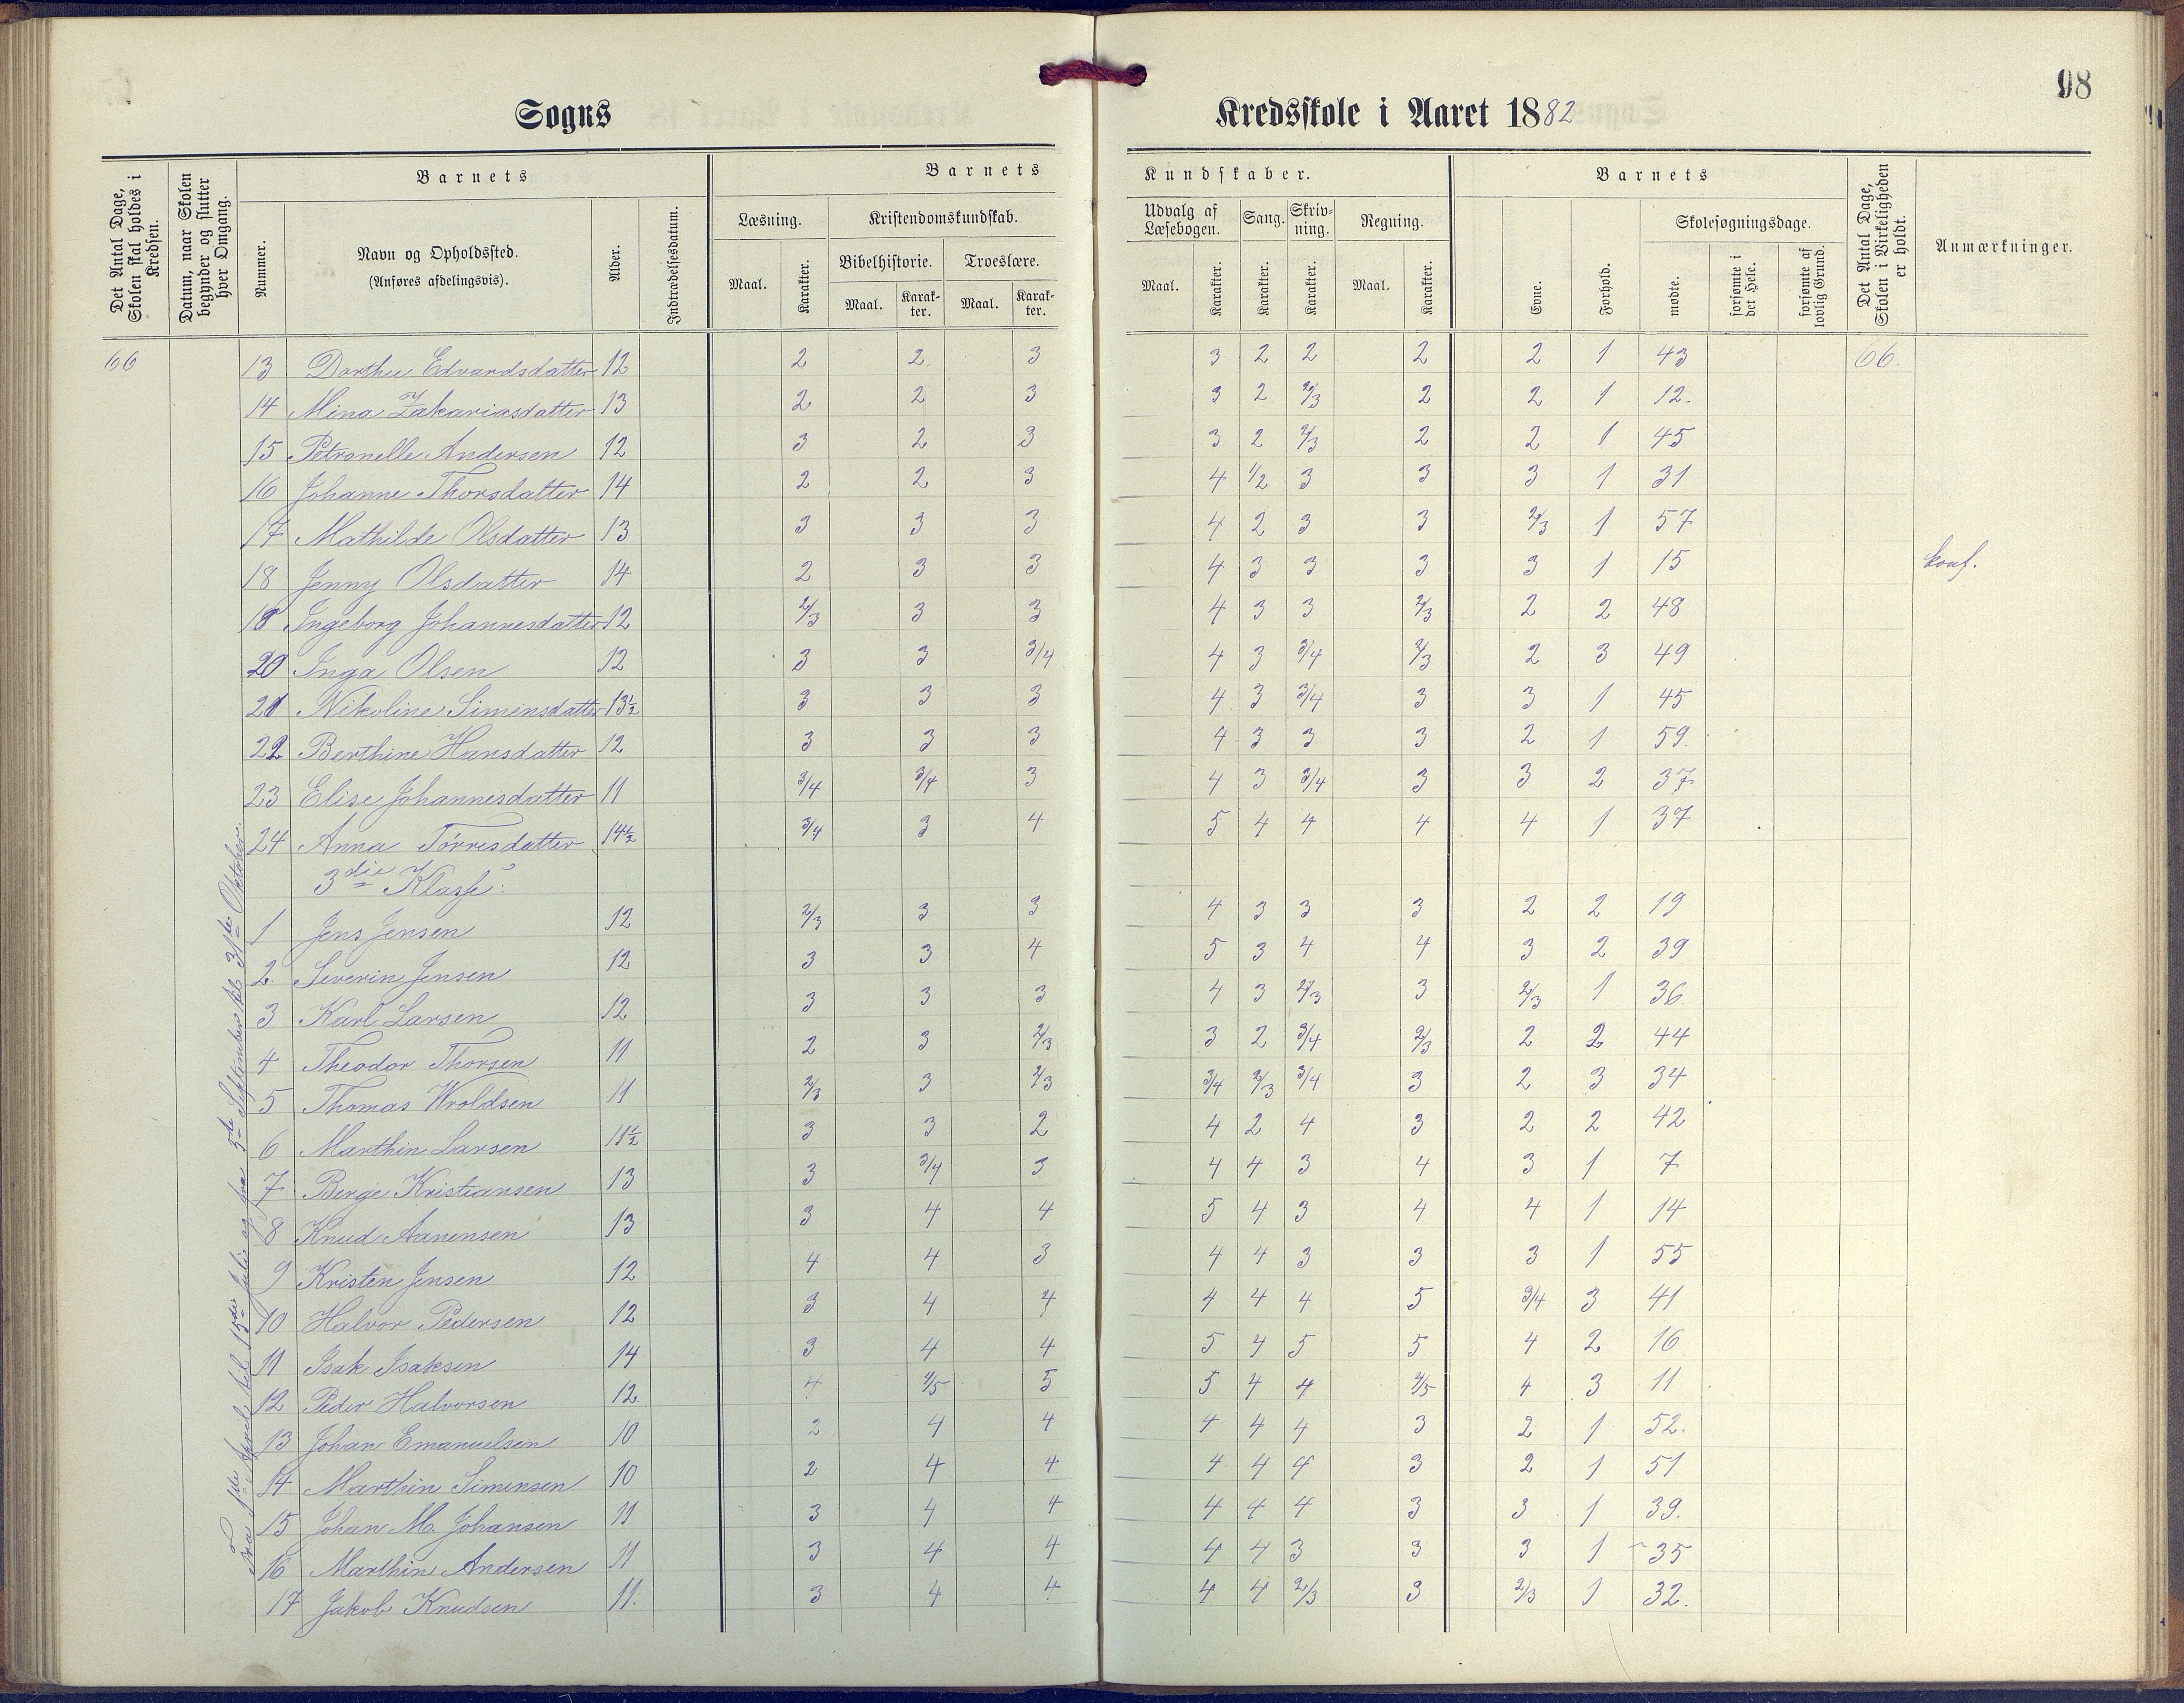 98
Sogns Kredsskole i Aaret 1882
Det Antal Dage, Skolen skal holdes i Kredsen.
Datum, naar Skolen begynder og slutter hver Omgang.
Barnets
Nummer.
Navn og Opholdssted.
(Anføres afdelingsvis).
Alder.
Indtrædelsesdatum.
Barnets Kundskaber.
Læsning.
Maal. Karakter.
Kristendomskundskab.
Bibelhistorie. Troeslære.
Maal. Karak-ter. Maal. Karak-ter.
Udvalg af Læsebogen.
Maal. Karakter.
Sang.
Karakter.
Skriv-ning.
Karakter.
Regning.
Maal. Karakter.
Barnets
Evne. Forhold.
Skolesøgningsdage.
mødte. forsømte i det Hele. forsømte af lovlig Grund.
Det Antal Dage, Skolen i Virkeligheden er holdt.
Anmærkninger.
66 13 Dorthea Edvardsdatter 12 2 2 3 3 2 2 2 2 1 43 66.
14 Mina Zakariasdatter 13 2 2 3 3 2 2/3 2 2 1 12.
15 Petronelle Andersen 12 3 2 3 3 2 2/3 2 2 1 45
16 Johanne Thorsdatter 14 2 2 3 4 1/2 3 3 3 1 31
17 Mathilde Olsdatter 13 3 3 3 4 2 3 3 2/3 1 57
18 Jenny Olsdatter 14 2 3 3 4 3 3 3 3 1 15 konf.
19 Ingeborg Johannesdatter 12 2/3 3 3 4 3 3 2/3 2 2 48
20 Inga Olsen 12 3 3 3/4 4 3 3/4 2/3 2 3 49
21 Nikoline Simensdatter 13½ 3 3 3 4 3 3/4 3 3 1 45
22 Berthine Hansdatter 12 3 3 3 4 3 3 3 2 1 59.
23 Elise Johannesdatter 11 3/4 3/4 3 4 3 3/4 3 3 2 37
24 Anna Tørresdatter 14½ 3/4 3 4 5 4 4 4 4 1 37
3die Klasse:
1 Jens Jensen 12 2/3 3 3 4 3 3 3 2 2 19
2. Severin Jensen 12 3 3 4 5 3 4 4 3 2 39
3 Karl Larsen 12 3 3 3 4 3 2/3 3 2/3 1 36.
4 Theodor Thorsen 11 2 3 2/3 3 2 3/4 2/3 2 2 44
5 Thomas Wroldsen 11 2/3 3 2/3 3/4 2/3 3/4 3 2 3 34
6 Marthin Larsen 11½ 3 3 2 4 2 4 3 2 2 42
7 Berge Kristiansen 13 3 3/4 3 4 4 3 4 3 1 7
8 Knud Aanensen 13 3 4 4 5 4 3 4 4 1 14
9 Kristen Jensen 12 4 4 3 4 4 3 3 3 1 55
10 Halvor Pedersen 12 3 4 4 4 4 4 5 3/4 3 41
11 Isak Isaksen 14 3 4 4 5 4 5 5 4 2 16
12 Peder Halvorsen 12. 4 4/5 5 5 4 4 4/5 4 3 11
13 Johan Emanuelsen 10 2 4 4 4 4 4 3 2 1 52.
14 Marthin Simensen 10 2 4 4 4 4 4 3 2 1 51
15 Johan M. Johansen 11 3 4 4 4 4 4 3 3 1 39.
16 Marthin Andersen 11 3 4 4 4 4 3 3 3 1 35
17 Jakob Knudsen 11. 3 4 4 4 4 2/3 3 2/3 1 32.
Fra April til 15de Juli og fra 5te September til 31te Oktober.